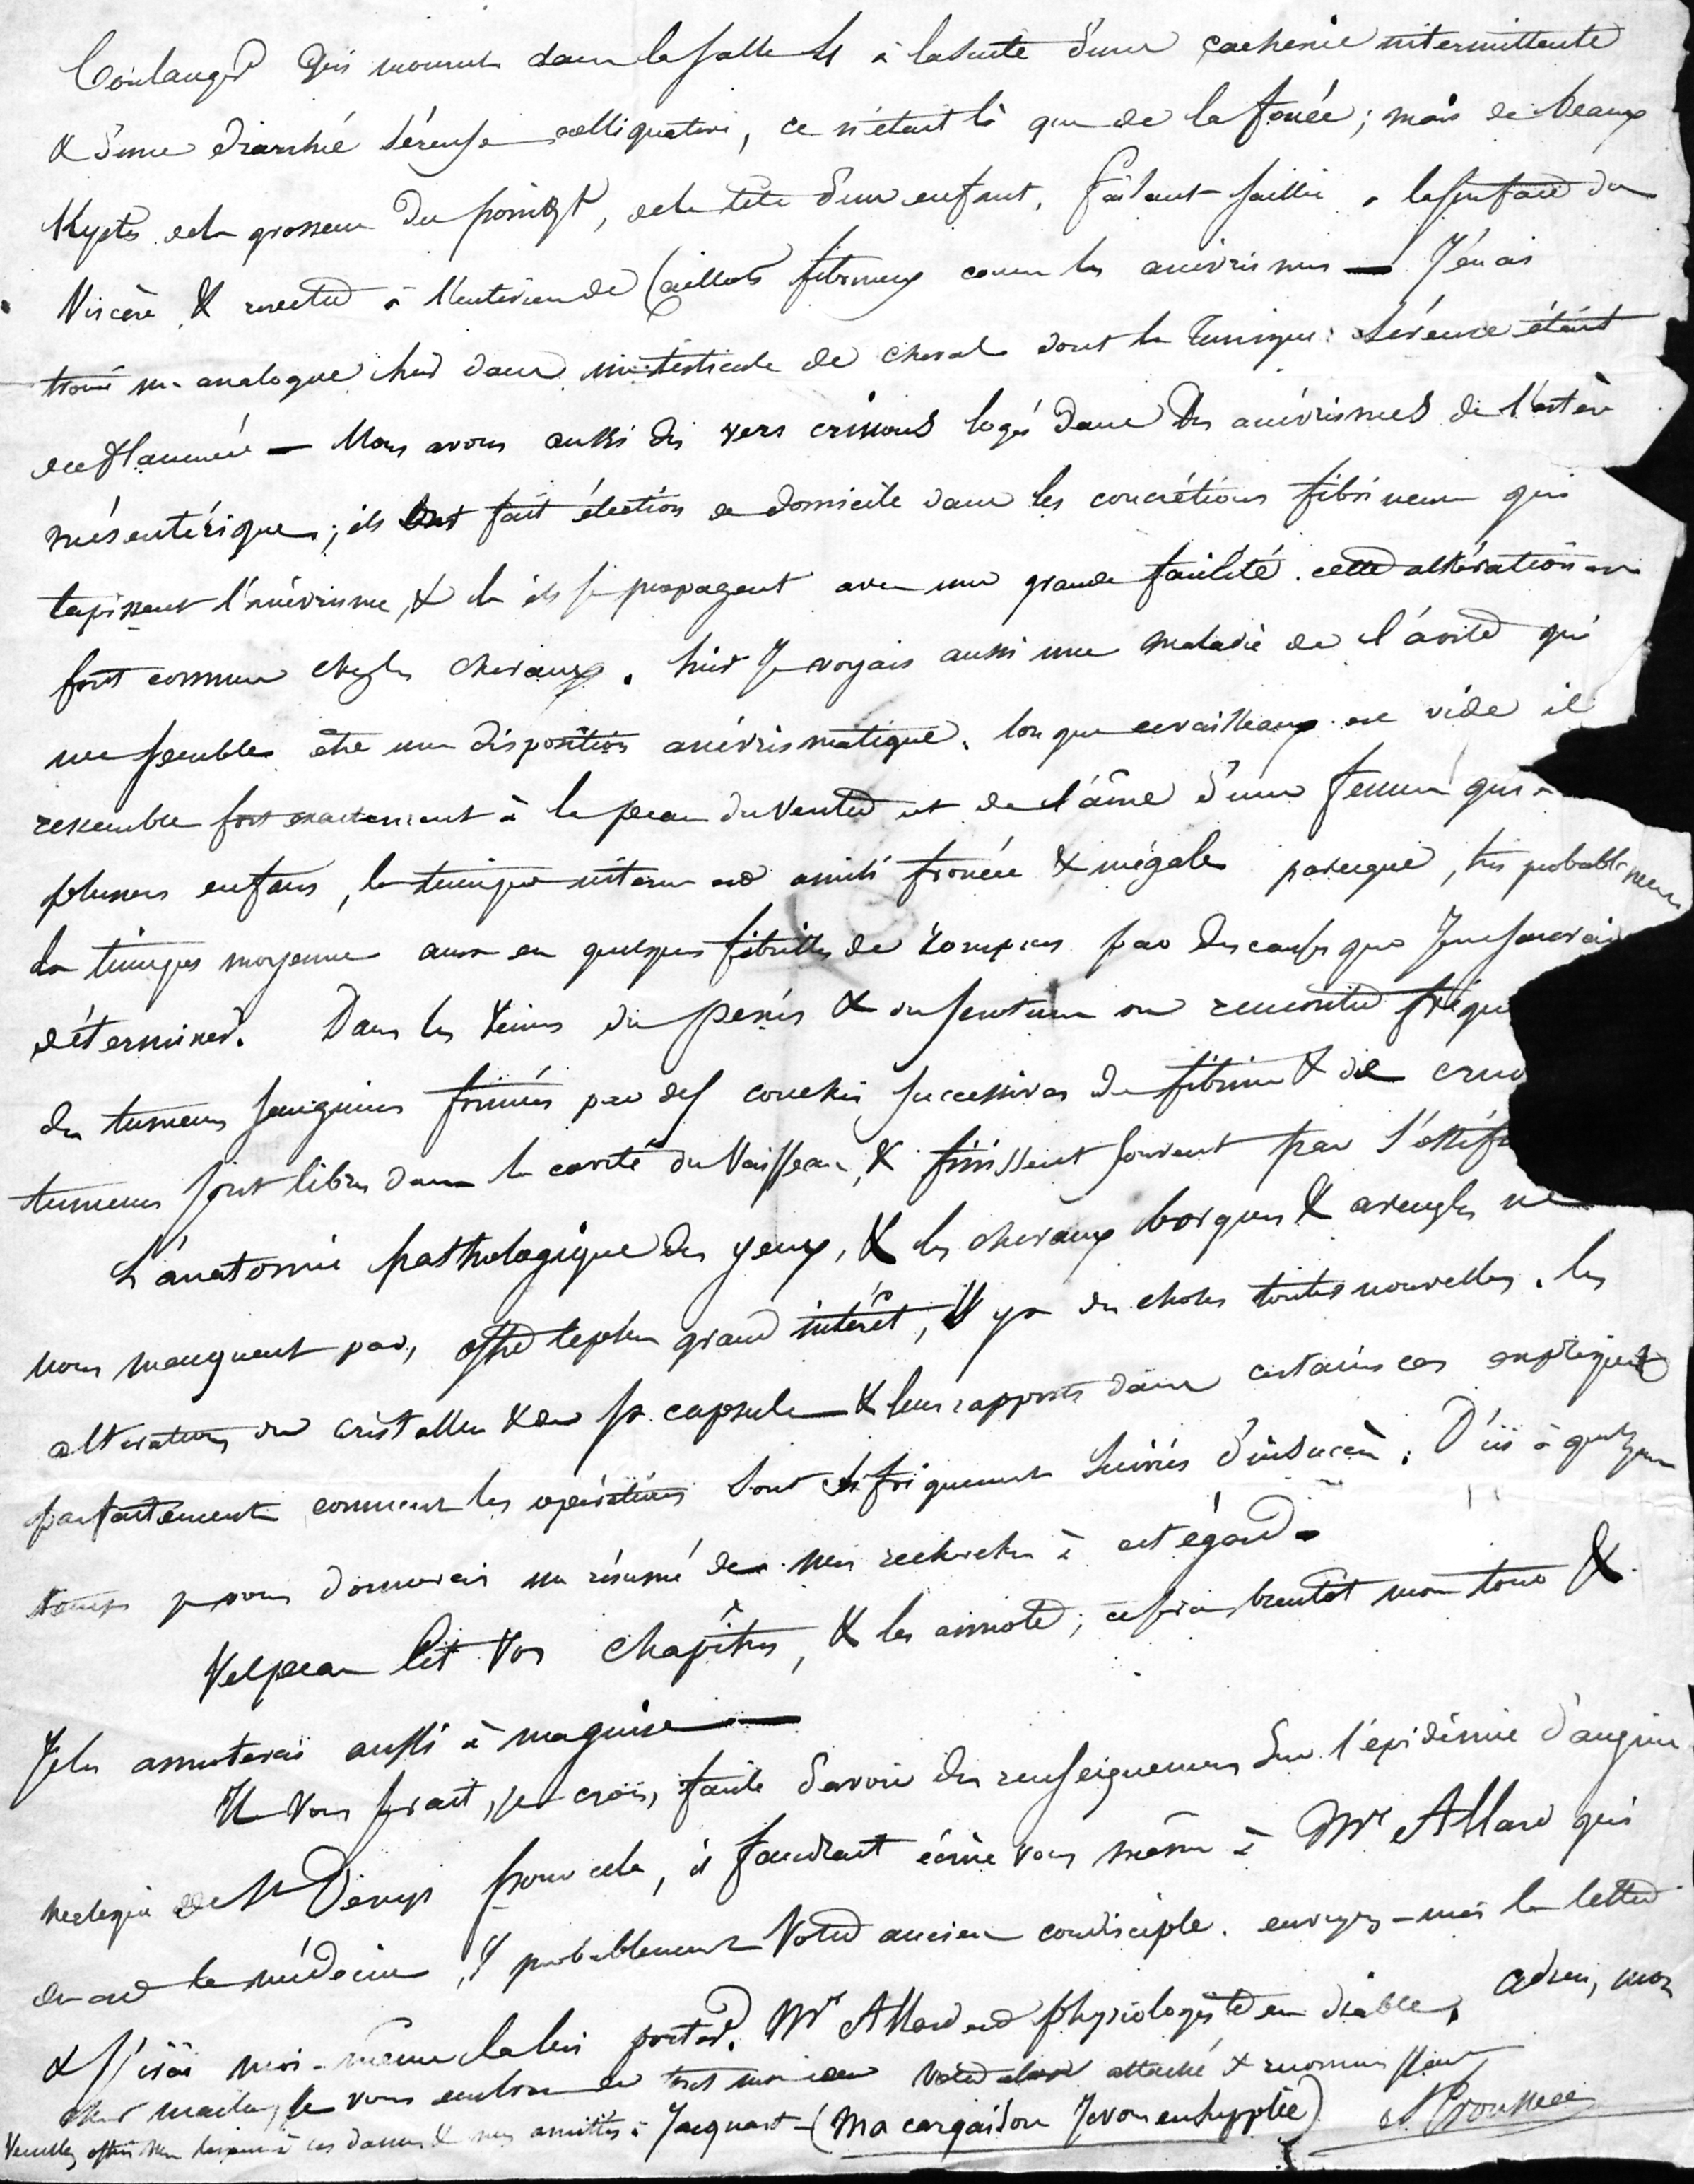 Boulanger qui mourut dans la salle St à la suite d'une cachexie intermittente
& d'une diarrhée séreuse colliquative, ce n'était là que de la ; mais de beaux
Kystes de la grosseur du poingt, de la tête d'un enfant, faisant saillie à la surface du
Viscère & revêtus à l'intérieur de Caillots fibrineux comme les anévrismes — J'en ai
trouvé un analogue hier dans un testicule de cheval dont la tunique séreuse était
enflammée — Nous avons aussi des vers crinons logés dans des anévrismes de l'artère
mésentérique; ils ont fait élection de domicile dans les concrétions fibrineuses qui
tapissent l'anévrisme, & là ils se propagent avec une grande facilité. cette altération est
fort commune chez les chevaux. hier Je voyais aussi une maladie de l'aorte qui
me semble être une disposition anévrismatique. lorsque ce vaisseau est vide il
ressemble fort exactement à la peau du ventre et de l'aîne d'une femme qui a
plusieurs enfans, la tunique interne est ainsi froncée & inégale parceque, très probablement
la tunique moyenne aura eu quelques fibrilles de rompues par des causes que Je ne saurais
déterminer. Dans les veines du penis & du scrotum on rencontre fréqu
des tumeurs sanguines formées par des couches successives de fibrine & de cruo
tumeurs sont libres dans la cavité du Vaisseau, & finissent souvent par s'ossifi
L'anatomie pathologique des yeux, & les chevaux borgnes & aveugles ne
nous manquent pas, offre le plus grand intérêt, il y a des choses toutes nouvelles. les
altérations du cristallin & de sa capsule & leurs rapports dans certains cas expliquent
parfaitement comment les opérations sont si fréquemment suivies d'insuccès. D'ici à quelque
temps je vous donnerais un résumé de mes recherches à cet égard —
Velpeau lit vos chapitres, & les annote; ce sera bientôt mon tour &
Je les annoterai aussi à ma guise —
Il vous serait, je crois, facile d'avoir des renseignemens sur l'épidémie d'angine
de St Denys pour cela, il faudrait écrire vous même à Mr Allard qui
en est le médecin & probablement Votre ancien condisciple. envoyez-moi la lettre
& J'irai moi-même la lui porter. Mr Allard est physiologiste en diable. adieu, mon
cher maître, Je vous embrasse de tout mon cœur Votre élève attaché & reconnaissant
Veuillez offrir mes devoirs à ces dames & mes amitiés à Jacquart — (Ma cargaison Je vous en supplie) A Trousseau